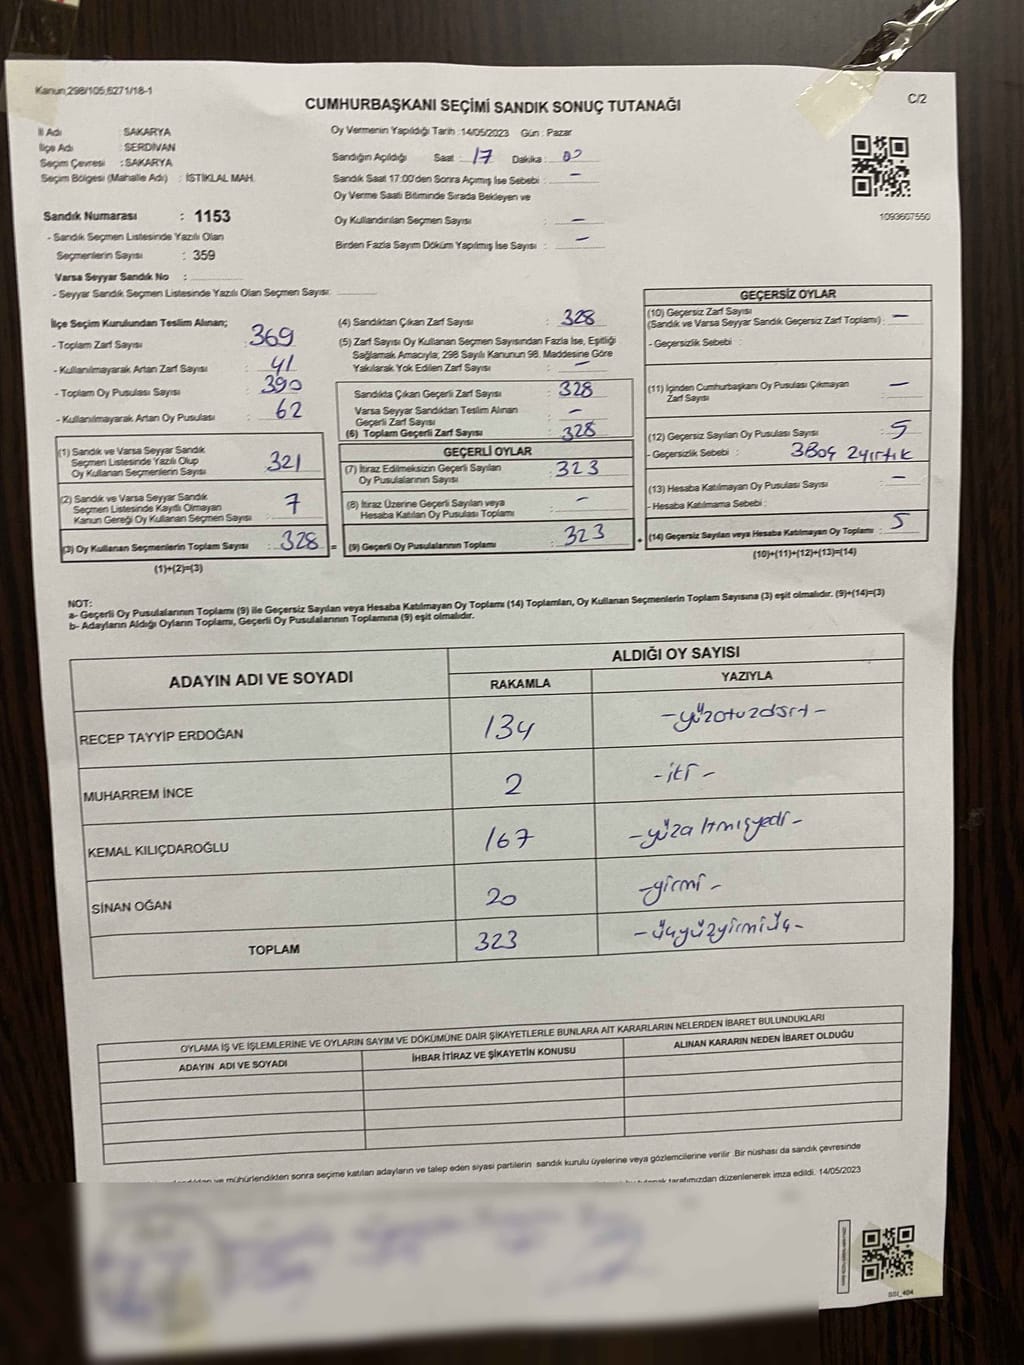 Kanun,298/105,6271/18-1
CUMHURBAŞKANI SEÇİMİ SANDIK SONUÇ TUTANAĞI
C/2
İl Adı : SAKARYA
İlçe Adı : SERDİVAN
Seçim Çevresi : SAKARYA
Seçim Bölgesi (Mahalle Adı) : İSTİKLAL MAH.
Sandık Numarası : 1153
- Sandık Seçmen Listesinde Yazılı Olan
Seçmenlerin Sayısı : 359
Varsa Seyyar Sandık No :
- Seyyar Sandık Seçmen Listesinde Yazılı Olan Seçmen Sayısı:
Oy Vermenin Yapıldığı Tarih :14/05/2023 Gün : Pazar
Sandığın Açıldığı Saat : 17 Dakika :
Sandık Saat 17:00'den Sonra Açımış İse Sebebi : -
Oy Verme Saati Bitiminde Sırada Bekleyen ve
Oy Kullandırılan Seçmen Sayısı : -
Birden Fazla Sayım Döküm Yapılmış İse Sayısı : -
1093607550
İlçe Seçim Kurulundan Teslim Alınan;
- Toplam Zarf Sayısı : 369
- Kullanılmayarak Artan Zarf Sayısı : 41
- Toplam Oy Pusulası Sayısı : 390
- Kullanılmayarak Artan Oy Pusulası : 62
(1) Sandık ve Varsa Seyyar Sandık
Seçmen Listesinde Yazılı Olup
Oy Kullanan Seçmenlerin Sayısı : 321
(2) Sandık ve Varsa Seyyar Sandık
Seçmen Listesinde Kayıtlı Olmayan
Kanun Gereği Oy Kullanan Seçmen Sayısı : 7
(3) Oy Kullanan Seçmenlerin Toplam Sayısı : 328 =
(1)+(2)=(3)
(4) Sandıktan Çıkan Zarf Sayısı : 328
(5) Zarf Sayısı Oy Kullanan Seçmen Sayısından Fazla İse, Eşitliği
Sağlamak Amacıyla; 298 Sayılı Kanunun 98. Maddesine Göre
Yakılarak Yok Edilen Zarf Sayısı : -
Sandıkta Çıkan Geçerli Zarf Sayısı : 328
Varsa Seyyar Sandıktan Teslim Alınan
Geçerli Zarf Sayısı : -
(6) Toplam Geçerli Zarf Sayısı : 328
GEÇERLİ OYLAR
(7) İtiraz Edilmeksizin Geçerli Sayılan
Oy Pusulalarının Sayısı : 323
(8) İtiraz Üzerine Geçerli Sayılan veya
Hesaba Katılan Oy Pusulası Toplamı : -
(9) Geçerli Oy Pusulalarının Toplamı : 323 +
GEÇERSİZ OYLAR
(10) Geçersiz Zarf Sayısı
(Sandık ve Varsa Seyyar Sandık Geçersiz Zarf Toplamı) : -
- Geçersizlik Sebebi :
(11) İçinden Cumhurbaşkanı Oy Pusulası Çıkmayan
Zarf Sayısı : -
(12) Geçersiz Sayılan Oy Pusulası Sayısı : 5
- Geçersizlik Sebebi : 3Boş 2yırtık
(13) Hesaba Katılmayan Oy Pusulası Sayısı : -
- Hesaba Katılmama Sebebi :
(14) Geçersiz Sayılan veya Hesaba Katılmayan Oy Toplamı : 5
(10)+(11)+(12)+(13)=(14)
NOT:
a- Geçerli Oy Pusulalarının Toplamı (9) ile Geçersiz Sayılan veya Hesaba Katılmayan Oy Toplamı (14) Toplamları, Oy Kullanan Seçmenlerin Toplam Sayısına (3) eşit olmalıdır. (9)+(14)=(3)
b- Adayların Aldığı Oyların Toplamı, Geçerli Oy Pusulalarının Toplamına (9) eşit olmalıdır.
ADAYIN ADI VE SOYADI
ALDIĞI OY SAYISI
RAKAMLA YAZIYLA
RECEP TAYYİP ERDOĞAN 134 -yüzotuzdört-
MUHARREM İNCE 2 -iki-
KEMAL KILIÇDAROĞLU 167 -yüzaltmışyedi-
SİNAN OĞAN 20 -yirmi-
TOPLAM 323 -üçyüzyirmiüç-
OYLAMA İŞ VE İŞLEMLERİNE VE OYLARIN SAYIM VE DÖKÜMÜNE DAİR ŞİKAYETLERLE BUNLARA AİT KARARLARIN NELERDEN İBARET BULUNDUKLARI
ADAYIN ADI VE SOYADI İHBAR İTİRAZ VE ŞİKAYETİN KONUSU ALINAN KARARIN NEDEN İBARET OLDUĞU
ve mühürlendikten sonra seçime katılan adayların ve talep eden siyasi partilerin sandık kurulu üyelerine veya gözlemcilerine verilir .Bir nüshası da sandık çevresinde
tarafımızdan düzenlenerek imza edildi. 14/05/2023